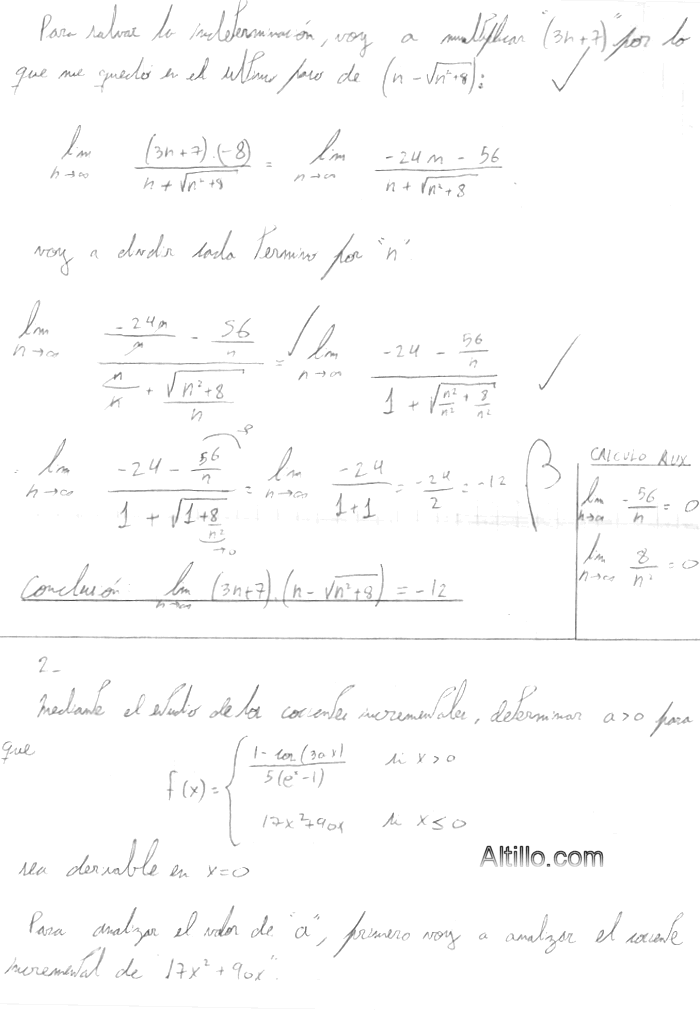 Para salvar la indeterminación, voy a multiplicar "(3n+7)" por lo
que me quedó en el último paso de (n - √(n²+8)):
lim n→∞ (3n+7).(-8) / (n + √(n²+8)) = lim n→∞ (-24n - 56) / (n + √(n²+8))
voy a dividir cada termino por "n".
lim n→∞ (-24n/n - 56/n) / (n/n + √(n²+8)/n) = lim n→∞ (-24 - 56/n) / (1 + √(n²/n² + 8/n²))
= lim n→∞ (-24 - 56/n) / (1 + √(1 + 8/n²)) = lim n→∞ -24 / (1+1) = -24/2 = -12
→0
CALCULO AUX
lim n→∞ -56/n = 0
lim n→∞ 8/n² = 0
Conclusión: lim n→∞ (3n+7).(n - √(n²+8)) = -12
2-
Mediante el estudio de los cocientes incrementales, determinar a>0 para
que
f(x) = { (1 - cos(3ax)) / (5(eˣ - 1)) si x>0
17x²+90x si x≤0
sea derivable en x=0
Altillo.com
Para analizar el valor de "a", primero voy a analizar el cociente
incremental de "17x² + 90x".